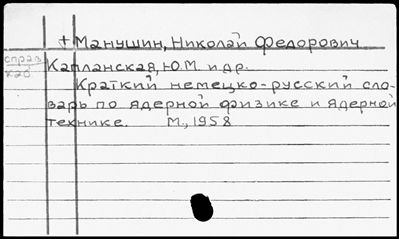 + Манушин, Николай Федорович
справ. каб.
Капланская, Ю.М. и др.
Краткий немецко-русский сло-
варь по ядерной физике и ядерной
технике. М., 1958